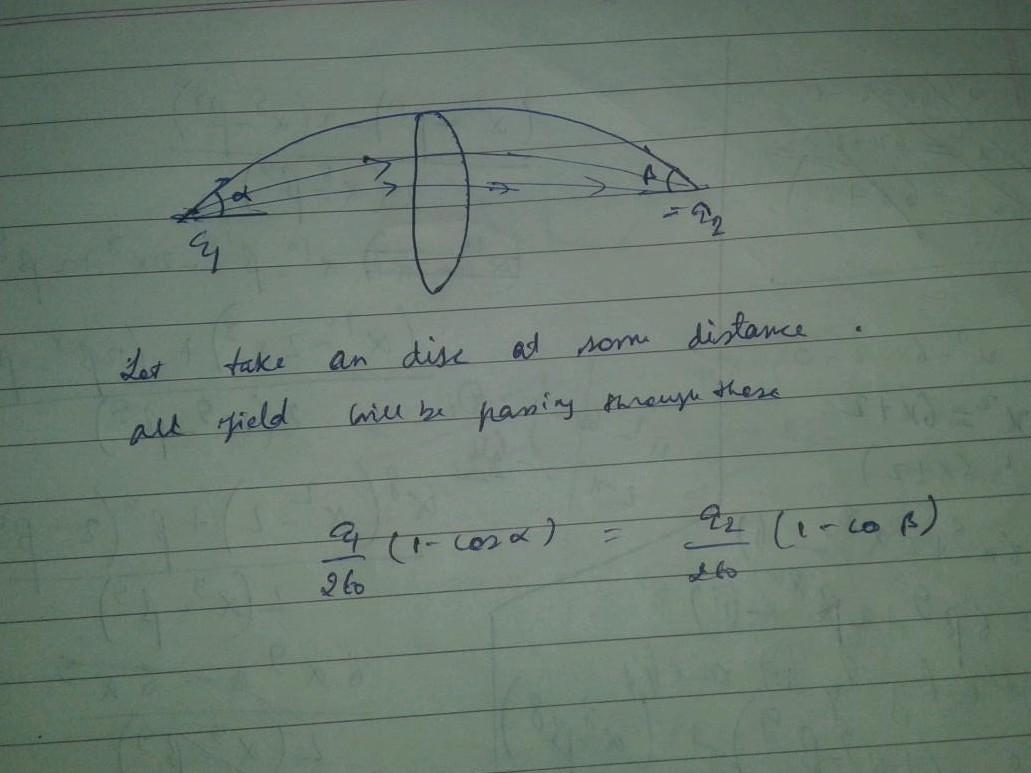 α
β
q1
= q2
Let take an disc at some distance .
all field will be passing through these
q1/2ε0 (1 - cos α) = q2/2ε0 (1 - co β)